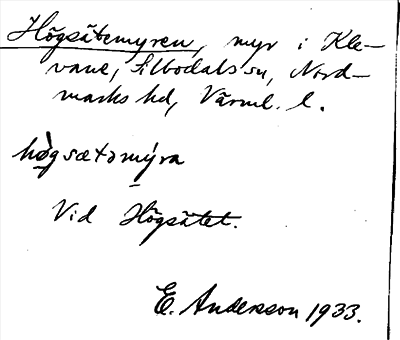 Högsätemyren, myr i Kle-
vane, Silbodals sn, Nord-
marks hd, Värml. l.
hò̱gsætəmýra
Vid Högsätet.
E. Andersson 1933.